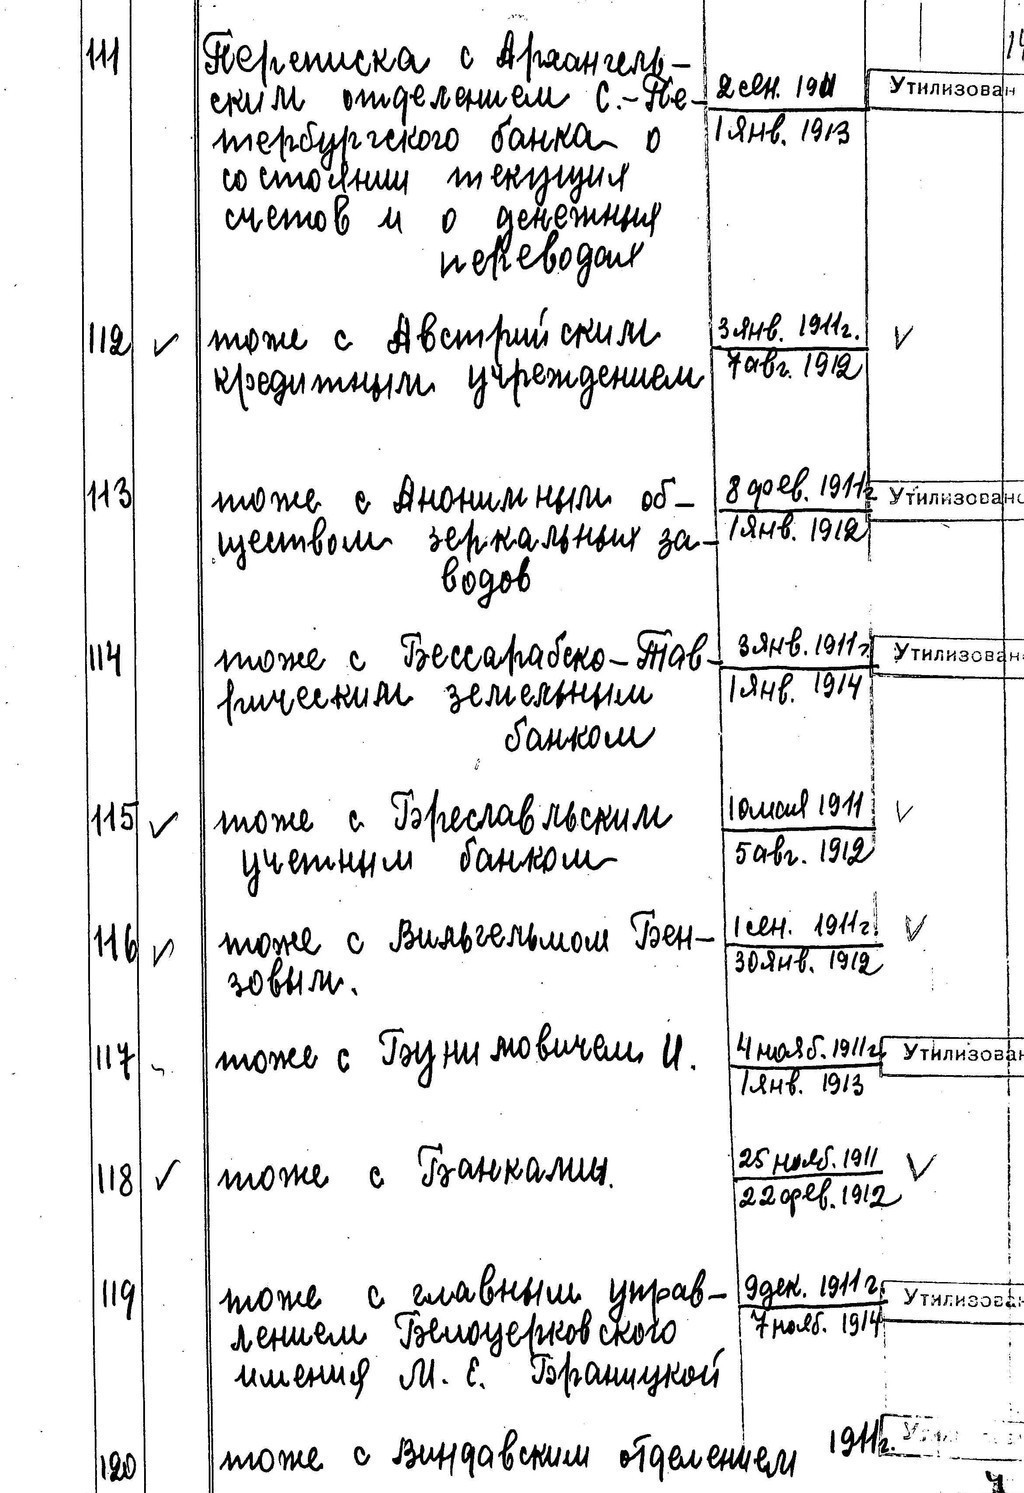 111 Переписка с Архангель-
ским отделением С.-Пе- 2 сен. 1911 Утилизован
тербургского банка о 1 янв. 1913
состоянии текущих
счетов и о денежных
переводах
112 ✓ тоже с Австрийским 3 янв. 1911г. ✓
кредитным учреждением 7 авг. 1912
113 тоже с Анонимным об- 8 фев. 1911г Утилизовано
ществом зеркальных за- 1 янв. 1912
водов
114 тоже с Бессарабско-Тав- 3 янв. 1911г. Утилизован
рическим земельным 1 янв. 1914
банком
115 ✓ тоже с Бреславльским 10 мая 1911 ✓
учетным банком 5 авг. 1912
116 ✓ тоже с Вильгельмом Бен- 1 сен. 1911г. ✓
зовым. 30 янв. 1912
117 тоже с Бунимовичем И. 4 нояб. 1911г. Утилизован
1 янв. 1913
118 ✓ тоже с Банками. 25 нояб. 1911 ✓
22 фев. 1912
119 тоже с главным управ- 9 дек. 1911г. Утилизован
лением Белоцерковского 7 нояб. 1914
имения М. Е. Браницкой
120 тоже с Виндавским отделением 1911г.